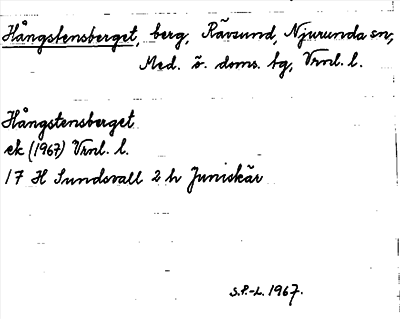 Hångstensberget, berg, Rävsund, Njurunda sn,
Med. ö. doms. tg, Vrnl. l.
Hångstensberget
ek (1967) Vrnl. l.
17 H Sundsvall 2 h Juniskär
S.P.-L. 1967.